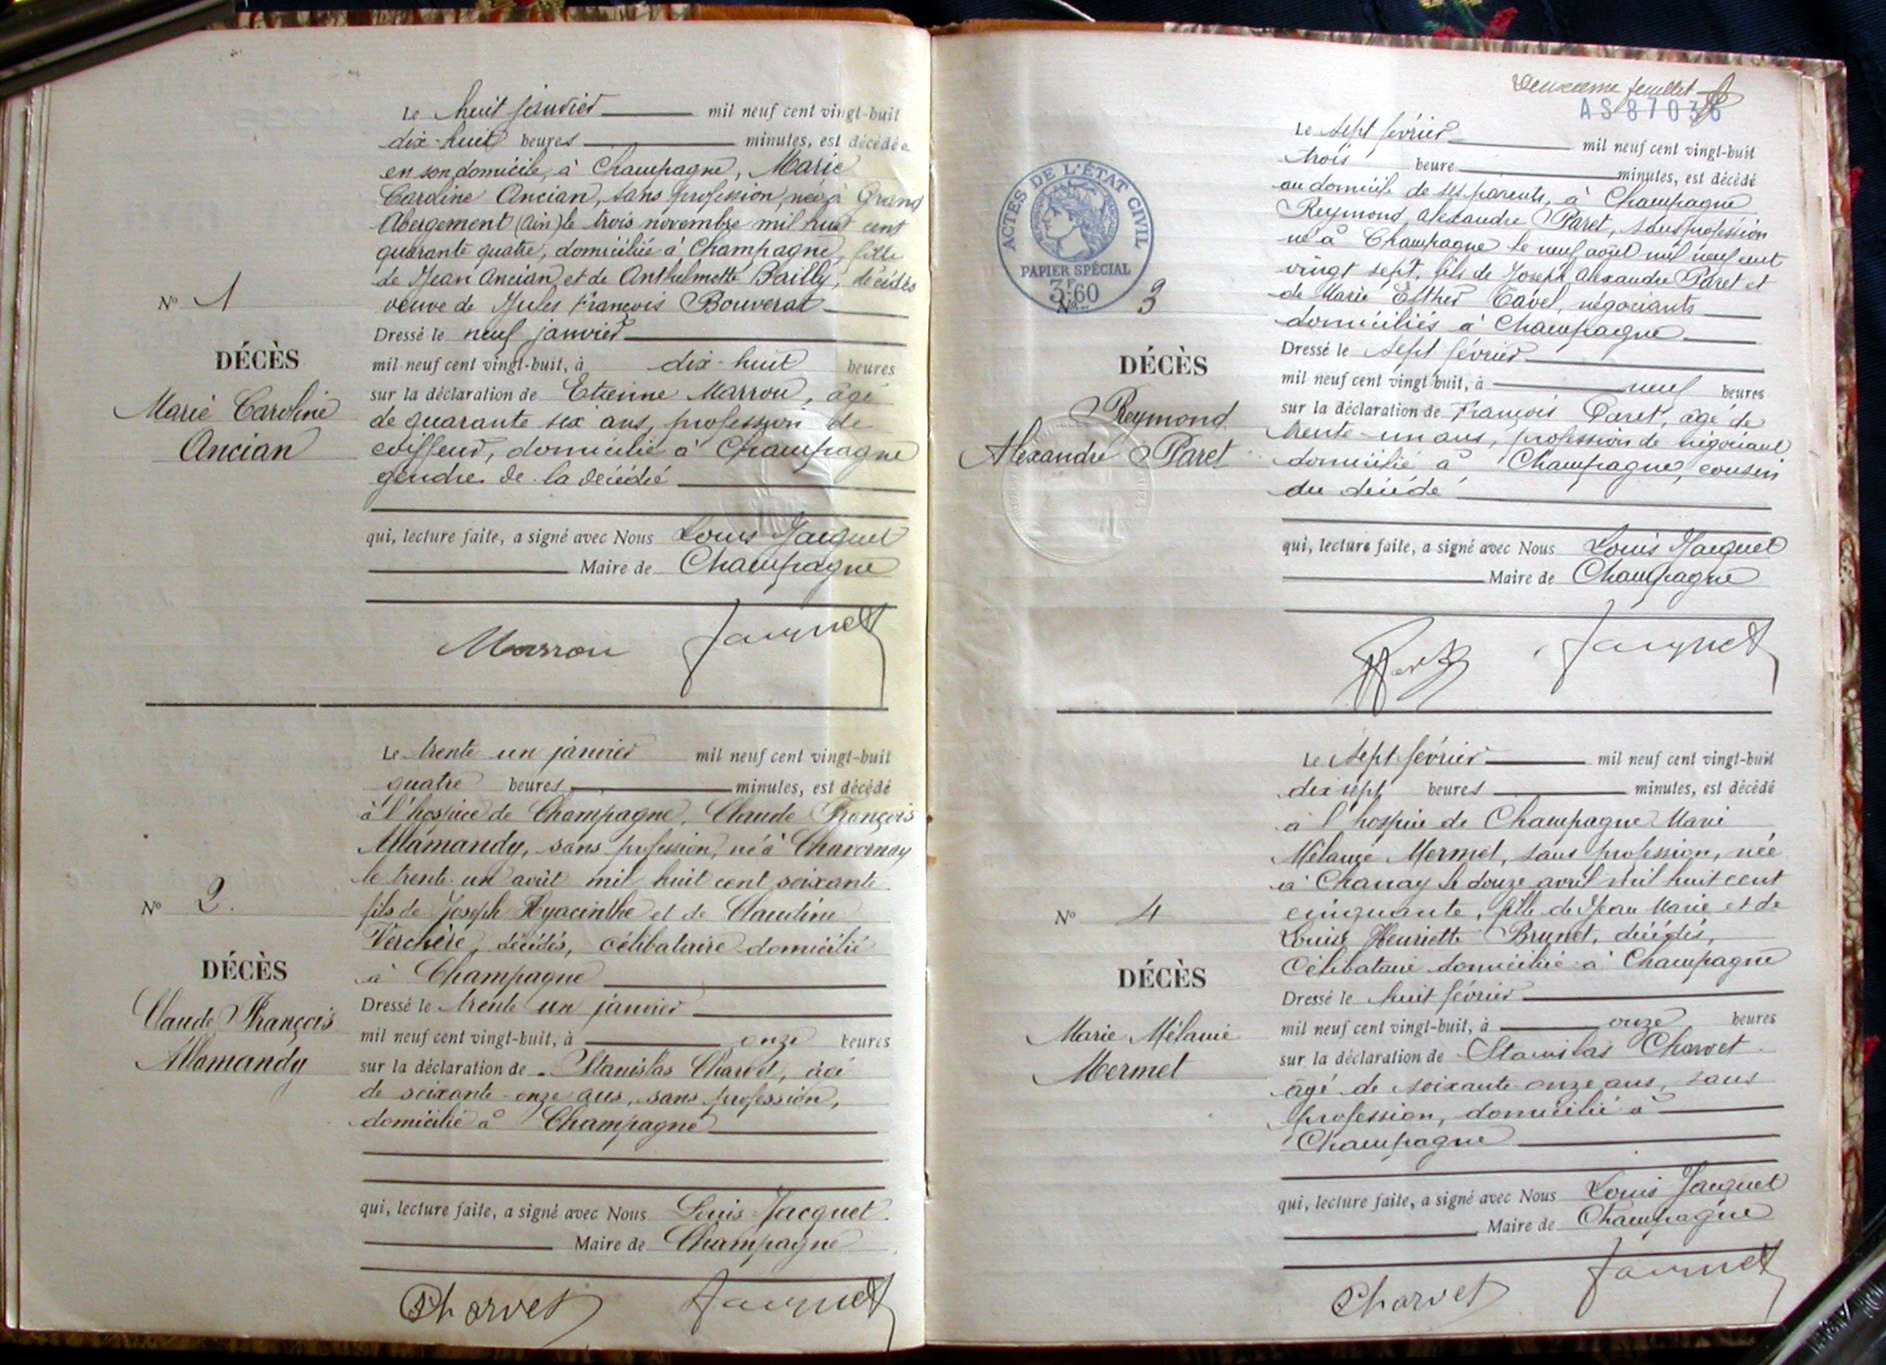 Le huit janvier mil neuf cent vingt-huit
dix-huit heures minutes, est décédée
en son domicile, à Champagne, Marie
Caroline Ancian, sans profession, née à Grand
Abergement (Ain) le trois novembre mil huit cent
quarante quatre, domiciliée à Champagne, fille
de Jean Ancian, et de Anthelmette Bailly, décédés
veuve de Jules François Bouverat
Nº 1
Dressé le neuf janvier
DÉCÈS
mil neuf cent vingt-huit, à dix-huit heures
Marie Caroline
Ancian
sur la déclaration de Etienne Marrou, âgé
de quarante six ans, profession de
coiffeur, domicilié à Champagne
gendre de la décédé
qui, lecture faite, a signé avec Nous Louis Jacquet
Maire de Champagne
Marrou Jacquet
Le trente un janvier mil neuf cent vingt-huit
quatre heures minutes, est décédé
à l'hospice de Champagne, Claude François
Allamandy, sans profession, né à Chavornay
le trente un août mil huit cent soixante
Nº 2.
fils de Joseph Hyacinthe et de Claudine
Verchère, décédés, célibataire domicilié
à Champagne
DÉCÈS
Claude François
Allamandy
Dressé le trente un janvier
mil neuf cent vingt-huit, à onze heures
sur la déclaration de Stanislas Charvet, âgé
de soixante-onze ans, sans profession,
domicilié à Champagne
qui, lecture faite, a signé avec Nous Louis Jacquet
Maire de Champagne
Charvet Jacquet
Deuxième feuillet
AS87036
Le sept février mil neuf cent vingt-huit
trois heure minutes, est décédé
au domicile de ses parents, à Champagne
Reymond Alexandre Paret, sans profession
né à Champagne le neuf août mil neuf cent
vingt sept, fils de Joseph Alexandre Paret et
de Marie Esther Tavel, négociants
domiciliés à Champagne
ACTES DE L'ÉTAT CIVIL
PAPIER SPÉCIAL
3F.60
Nº 3
DÉCÈS
Reymond
Alexandre Paret
Dressé le sept février
mil neuf cent vingt-huit, à neuf heures
sur la déclaration de François Paret, âgé de
trente-un ans, profession de négociant
domicilié à Champagne, cousin
du décédé
qui, lecture faite, a signé avec Nous Louis Jacquet
Maire de Champagne
Jacquet
Le sept février mil neuf cent vingt-huit
dix sept heures minutes, est décédé
à l'hospice de Champagne Marie
Mélanie Mermet, sans profession, née
à Chanay le douze avril mil huit cent
Nº 4
cinquante, fille de Jean Marie et de
Louise Henriette Brunet, décédés,
Célibataire domiciliée à Champagne
DÉCÈS
Marie Mélanie
Mermet
Dressé le huit février
mil neuf cent vingt-huit, à onze heures
sur la déclaration de Stanislas Charvet
âgé de soixante onze ans, sans
profession, domicilié à
Champagne
qui, lecture faite, a signé avec Nous Louis Jacquet
Maire de Champagne
Charvet Jacquet